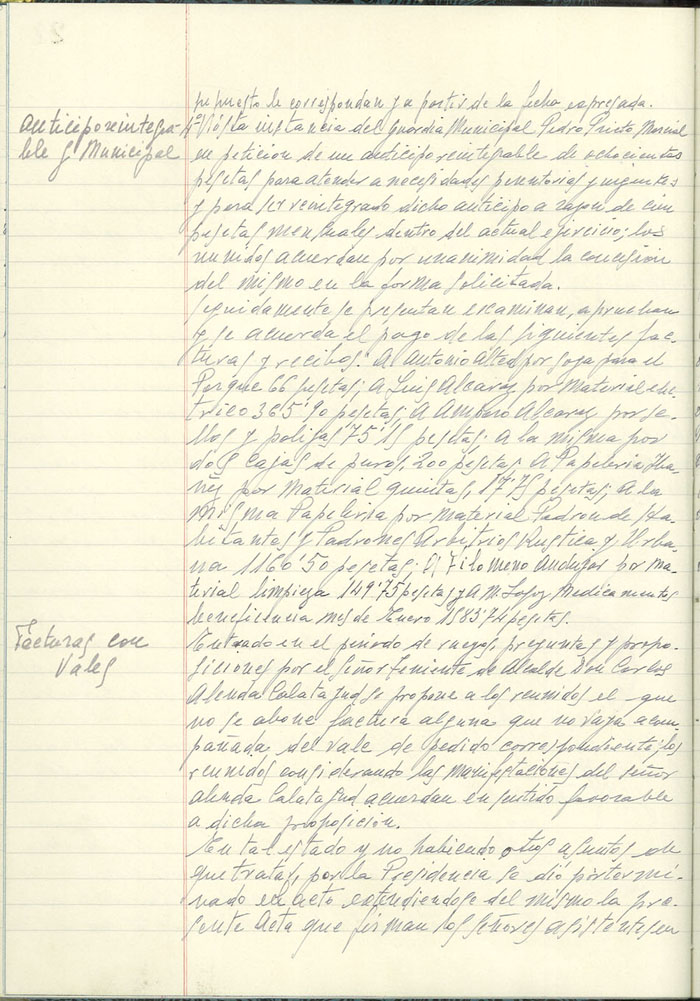 supuesto le correspondan y a partir de la fecha expresada.
Anticipo reintegra-
ble G. Municipal
4º Vista instancia del guardia Municipal Pedro Prieto Marcial
en petición de un anticipo reintegrable de ochocientas
pesetas para atender a necesidades perentorias y urgentes
y para ser reintegrado dicho anticipo a razon de cien
pesetas mensuales dentro del actual ejercicio; los
reunidos acuerdan por unanimidad la concesión
del mismo en la forma solicitada.
Seguidamente se presentan examinan, aprueban
y se acuerda el pago de las siguientes fac-
turas y recibos: A Antonio Alted por soga para el
Parque 66 pesetas; A Luis Alcaraz por Material elec-
trico 365'90 pesetas; A Amparo Alcaraz por se-
llos y polizas 75'15 pesetas; A la misma por
dos cajas de puros, 200 pesetas A Papeleria Iba-
ñez por Material quintas, 17'75 pesetas; A la
misma Papeleria por Material Padron de Ha-
bitantes y Padrones Arbitrios Rustica y Urba-
na 1160'50 pesetas; A Filomeno Andujar por ma-
terial limpieza 149'75 pesetas y A M. Medicamentos
beneficencia mes de Enero 1583'74 pesetas.
Facturas con
Vales
Entrado en el periodo de ruegos, preguntas y propo-
siciones por el Señor Teniente de Alcalde Don Carlos
Alenda Calatayud se propone a los reunidos el que
no se abone factura alguna que no vaya acom-
pañada del vale de pedido correspondiente; los
reunidos considerando las manifestaciones del señor
Alenda Calatayud acuerdan en sentido favorable
a dicha proposición.
En tal estado y no habiendo otros asuntos de
que tratar, por la Presidencia se dió por termi-
nado el acto extendiendose del mismo la pre-
sente Acta que firman los señores asistentes en